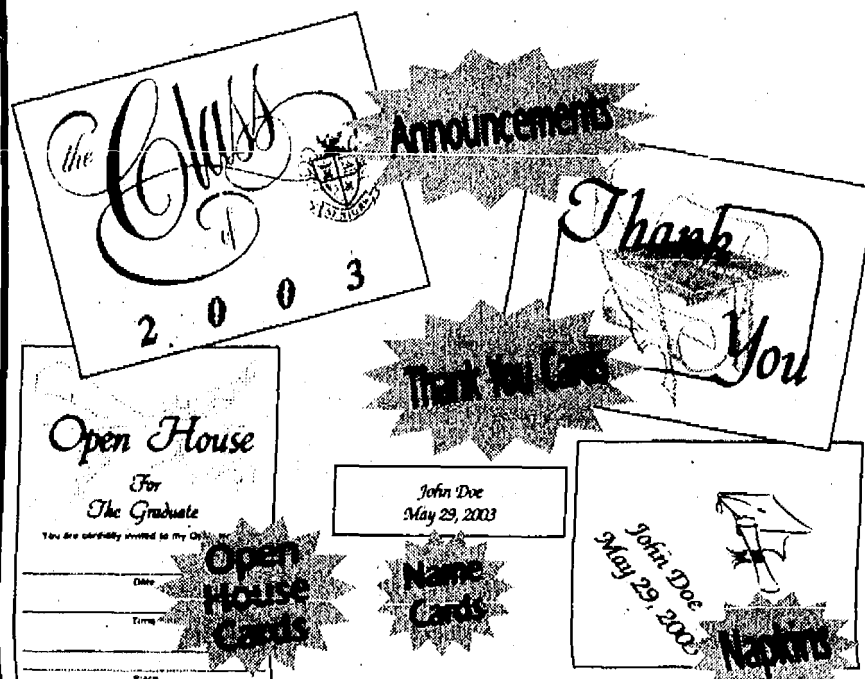 the Class
of
SENIORS
2 0 0 3
Announcements
Thank
You
Thank You Cards
Open House
For
The Graduate
You are cordially invited to my
Date
Time
Place
Open
House
Cards
John Doe
May 29, 2003
Name
Cards
John Doe
May 29, 200
Napkins